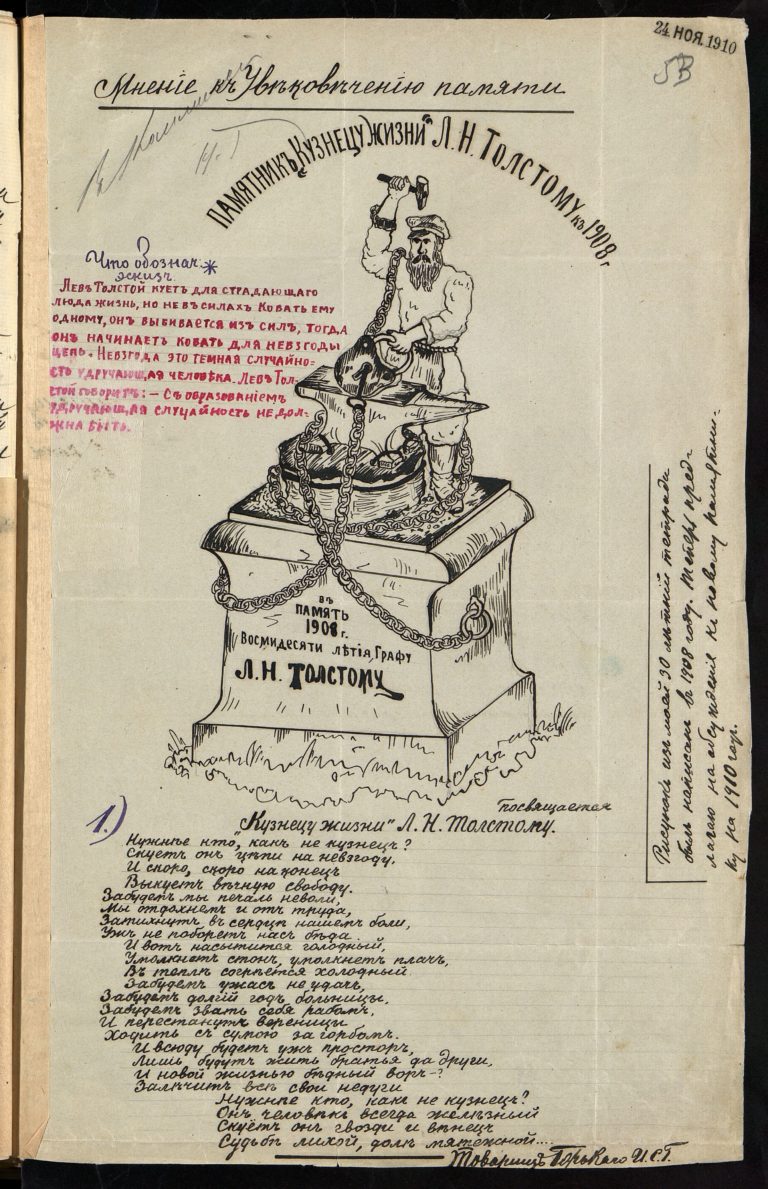 24 НОЯ. 1910
Мненіе къ Увѣковѣченію памяти
Памятникъ „Кузнецу Жизни“ Л. Н. Толстому къ 1908 г.
Что обознач.
эскизъ
Левъ Толстой куетъ для страдающаго
люда жизнь, но не въ силахъ ковать ему
одному, онъ выбивается изъ силъ, тогда
онъ начинаетъ ковать для невзгоды
цепь. Невзгода это темная случайно-
сть удручающая человѣка. Левъ Тол-
стой говоритъ: — Съ образованіемъ
удручающая случайность не дол-
жна быть.
въ
память
1908 г.
Восмидесяти лѣтія, Графу
Л. Н. Толстому
Рисунокъ изъ моей 30 лѣтній тетради
былъ написанъ въ 1908 году. Теперь пред-
лагаю на обсужденіе къ новому памятни-
ку на 1910 годъ.
1.)
посвящается
„Кузнецу жизни“ Л. Н. Толстому.
Нужнѣе кто, какъ не кузнецъ?
Скуетъ онъ цѣпи на невзгоду,
И скоро, скоро на конецъ
Выкуетъ вѣчную свободу.
Забудемъ мы печаль неволи,
Мы отдохнемъ и отъ труда,
Затихнутъ въ сердцѣ нашемъ боли,
Ужъ не поборетъ насъ бѣда.
И вотъ насытится голодный,
Умолкнетъ стонъ, умолкнетъ плачъ,
Въ теплѣ согрѣется холодный
Забудемъ ужасъ не удачъ,
Забудемъ долгій годъ больницы,
Забудемъ звать себя рабомъ,
И перестанутъ вереницы
Ходить съ сумою за горбомъ.
И всюду будетъ ужъ просторъ,
Лишь будутъ жить братья да други,
И новой жизнью бѣдный воръ-?
Залѣчитъ всѣ свои недуги
Нужнѣе кто, какъ не кузнецъ?
Онъ человѣкъ всегда желѣзный
Скуётъ онъ гвозди и вѣнецъ
Судьбѣ лихой, долѣ мятежной....
Товарищъ Горькаго И. С. Г.